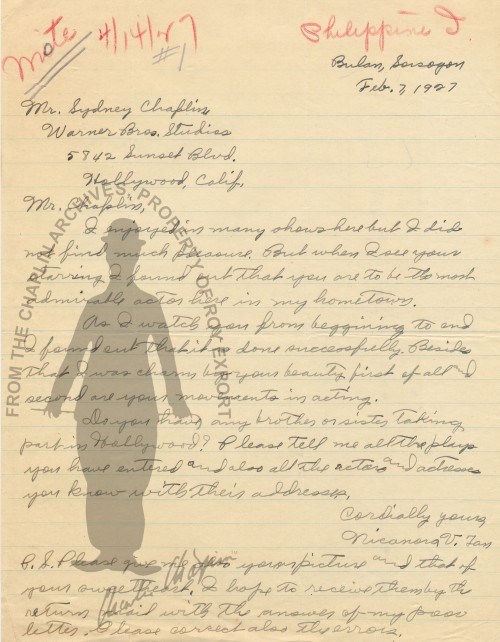 Wrote 4/14/27
#1
Philippine I.
Bulan, Sorsogon
Feb. 7, 1927
Mr. Sydney Chaplin
Warner Bros. Studios
5842 Sunset Blvd.
Hollywood, Calif.,
Mr. Chaplin,
I enjoyed in many shows here but I did
not find much pleasure. But when I see your
starring I found out that you are to be the most
admirable actor here in my hometown.
As I watch you from beggining to end
I found out that it is done successfully. Besides
that I was charm by your beauty first of all and
second are your movements in acting.
Do you have any brother or sister taking
part in Hollywood? Please tell me all the plays
you have entered and also all the actors and actresses
you know with their addresses.
Cordially yours,
Nicanora V. Tan
P.S. Please give me your picture and that of
your sweetheart. I hope to receive them by the
return mail with the answer of my poor
letter. Please correct also the errors.
FROM THE CHAPLIN ARCHIVES, PROPERTY OF ROY EXPORT